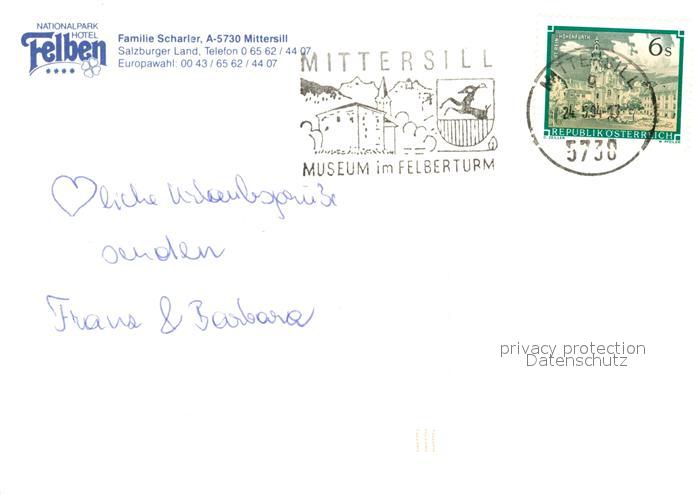 NATIONALPARK
HOTEL
Felben
Familie Scharler, A-5730 Mittersill
Salzburger Land, Telefon 0 65 62 / 44 07
Europawahl: 00 43 / 65 62 / 44 07
MITTERSILL
MUSEUM im FELBERTURM
6s
REPUBLIK ÖSTERREICH
MITTERSILL
5730
♡liche Urlaubsgrüße
senden
Franz & Barbara
privacy protection
Datenschutz